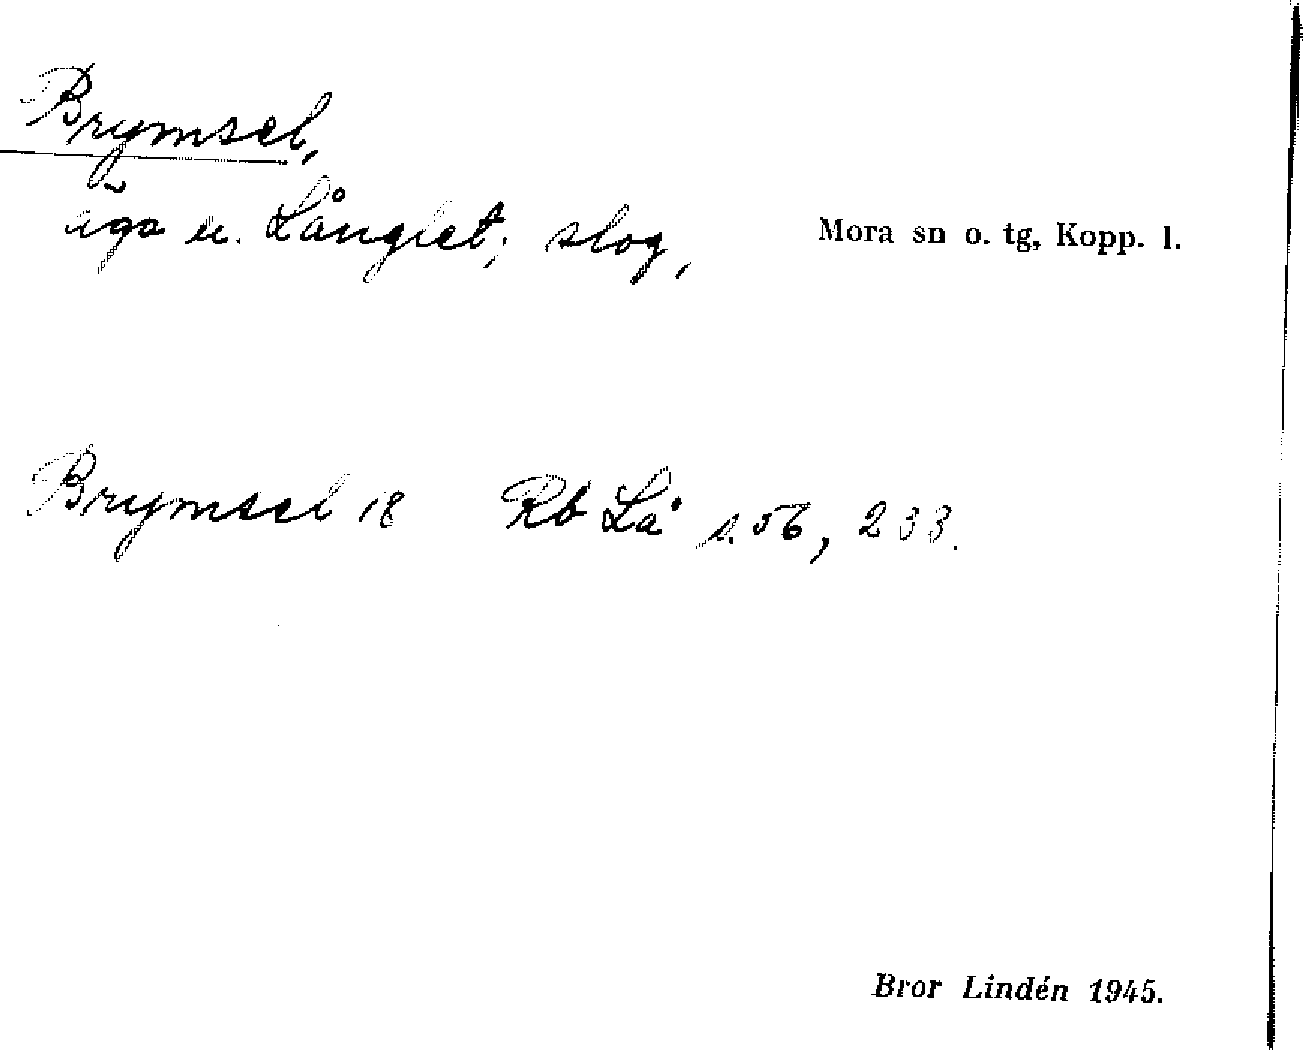 Brymsel,
äga u. Långlet; slog,
Mora sn o. tg, Kopp. l.
Brymsel 18 Rb Lå s. 56, 233.
Bror Lindén 1945.